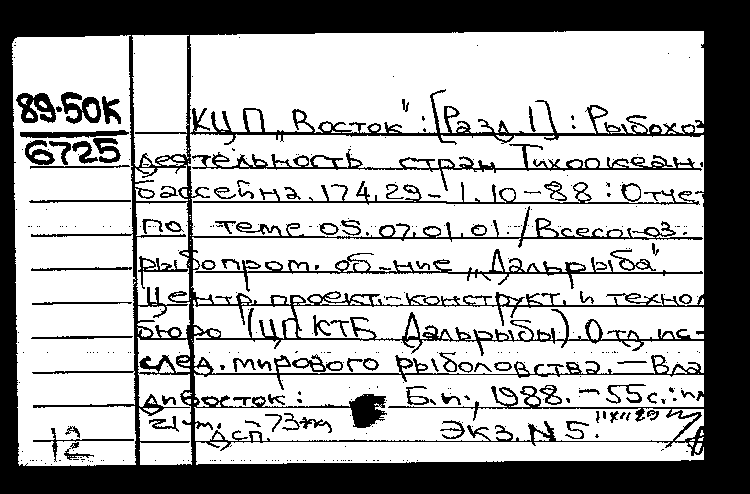 89-50К
6725
КЦП „Восток": [Разд. 1] : Рыбохоз
деятельность стран Тихоокеан.
бассейна. 174.29-1.10-88 : Отчет
по теме 05.07.01.01 / Всесоюз.
рыбопром. об-ние „Дальрыба",
Центр. проект.-конструкт. и технол
бюро (ЦПКТБ Дальрыбы). Отд. ис-
след. мирового рыболовства. — Вла
дивосток : Б.и., 1988. - 55 с. : ил
21 ДСП. 73 Экз. N 5.
12